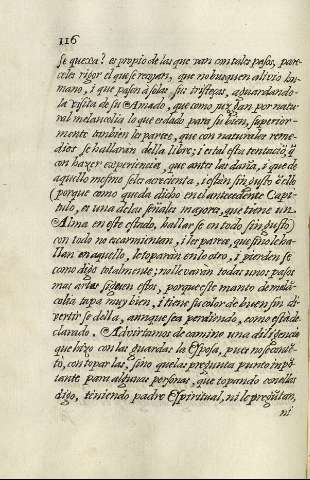 116
se quexa? es propio de las que van con tales pasos, pare-
celes rigor el que se recojan, que no busquen alivio hu-
mano, i que pasen a solas sus tristezas, aguardando
la visita de su Amado, que como juzgan por natu-
ral melancolia lo que es dado para su bien, superior-
mente tambien les parece, que con naturales reme-
dios se hallaran della libre; i es tal esta tentacion, q̃
con hazer experiencia, que antes las daña, i que de
aquello mesmo seles acrecienta, i estan sin gusto ẽ ello
(porque como queda dicho en el antecedente Capi-
tulo, es una de las señales mayores, que tiene un
Alma en este estado, hallarse en todo sin gusto)
con todo no escarmientan, i les parece, que sino le ha-
llan en aquello, le toparàn en lo otro, i pierden se
como digo totalmente; no llevaràn todas unos pasos
mas arlas siguen estos, porque este manto de melã-
colia tapa muy bien, i tiene su color de buen sin di-
vertirse della, aunque sea perdiendo, como està de-
clarado. Advirtamos de camino una diligencia
que hizo con las guardas la Esposa, pues no se contẽ-
tò, con topar las, sino que las pregunta punto impor-
tante para algunas personas, que topando con ellas
digo, teniendo padre Espiritual, ni le preguntan,
ni